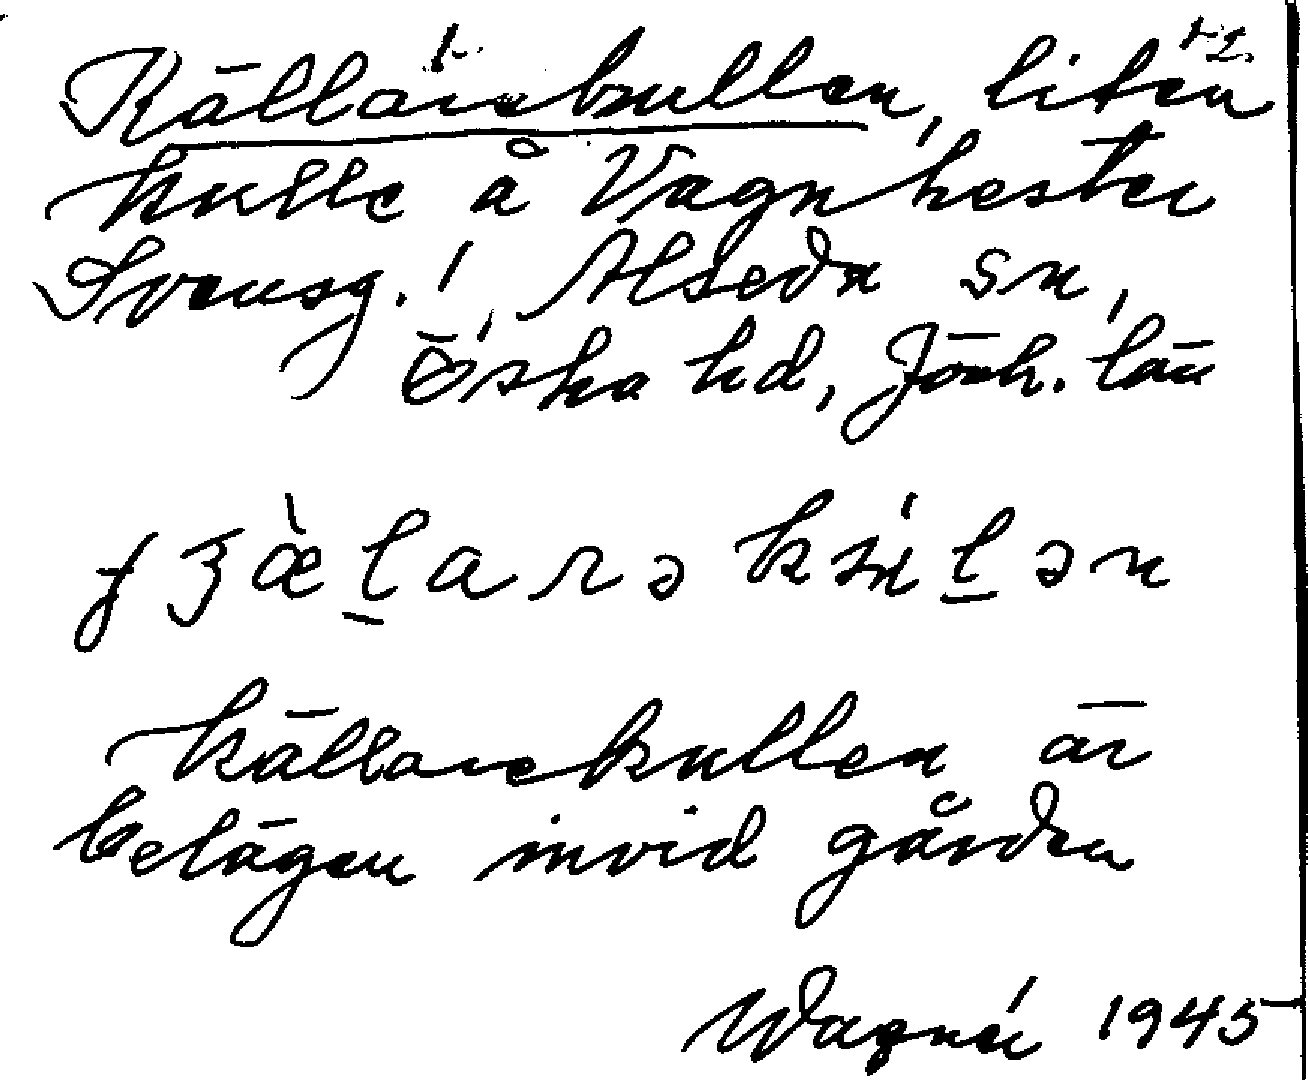 Källarekullen, liten
kulle å Vagnhester
Svensg., Alseda sn,
Östra hd, Jönk. län
källarekullen är
belägen invid gården
Wagnér 1945